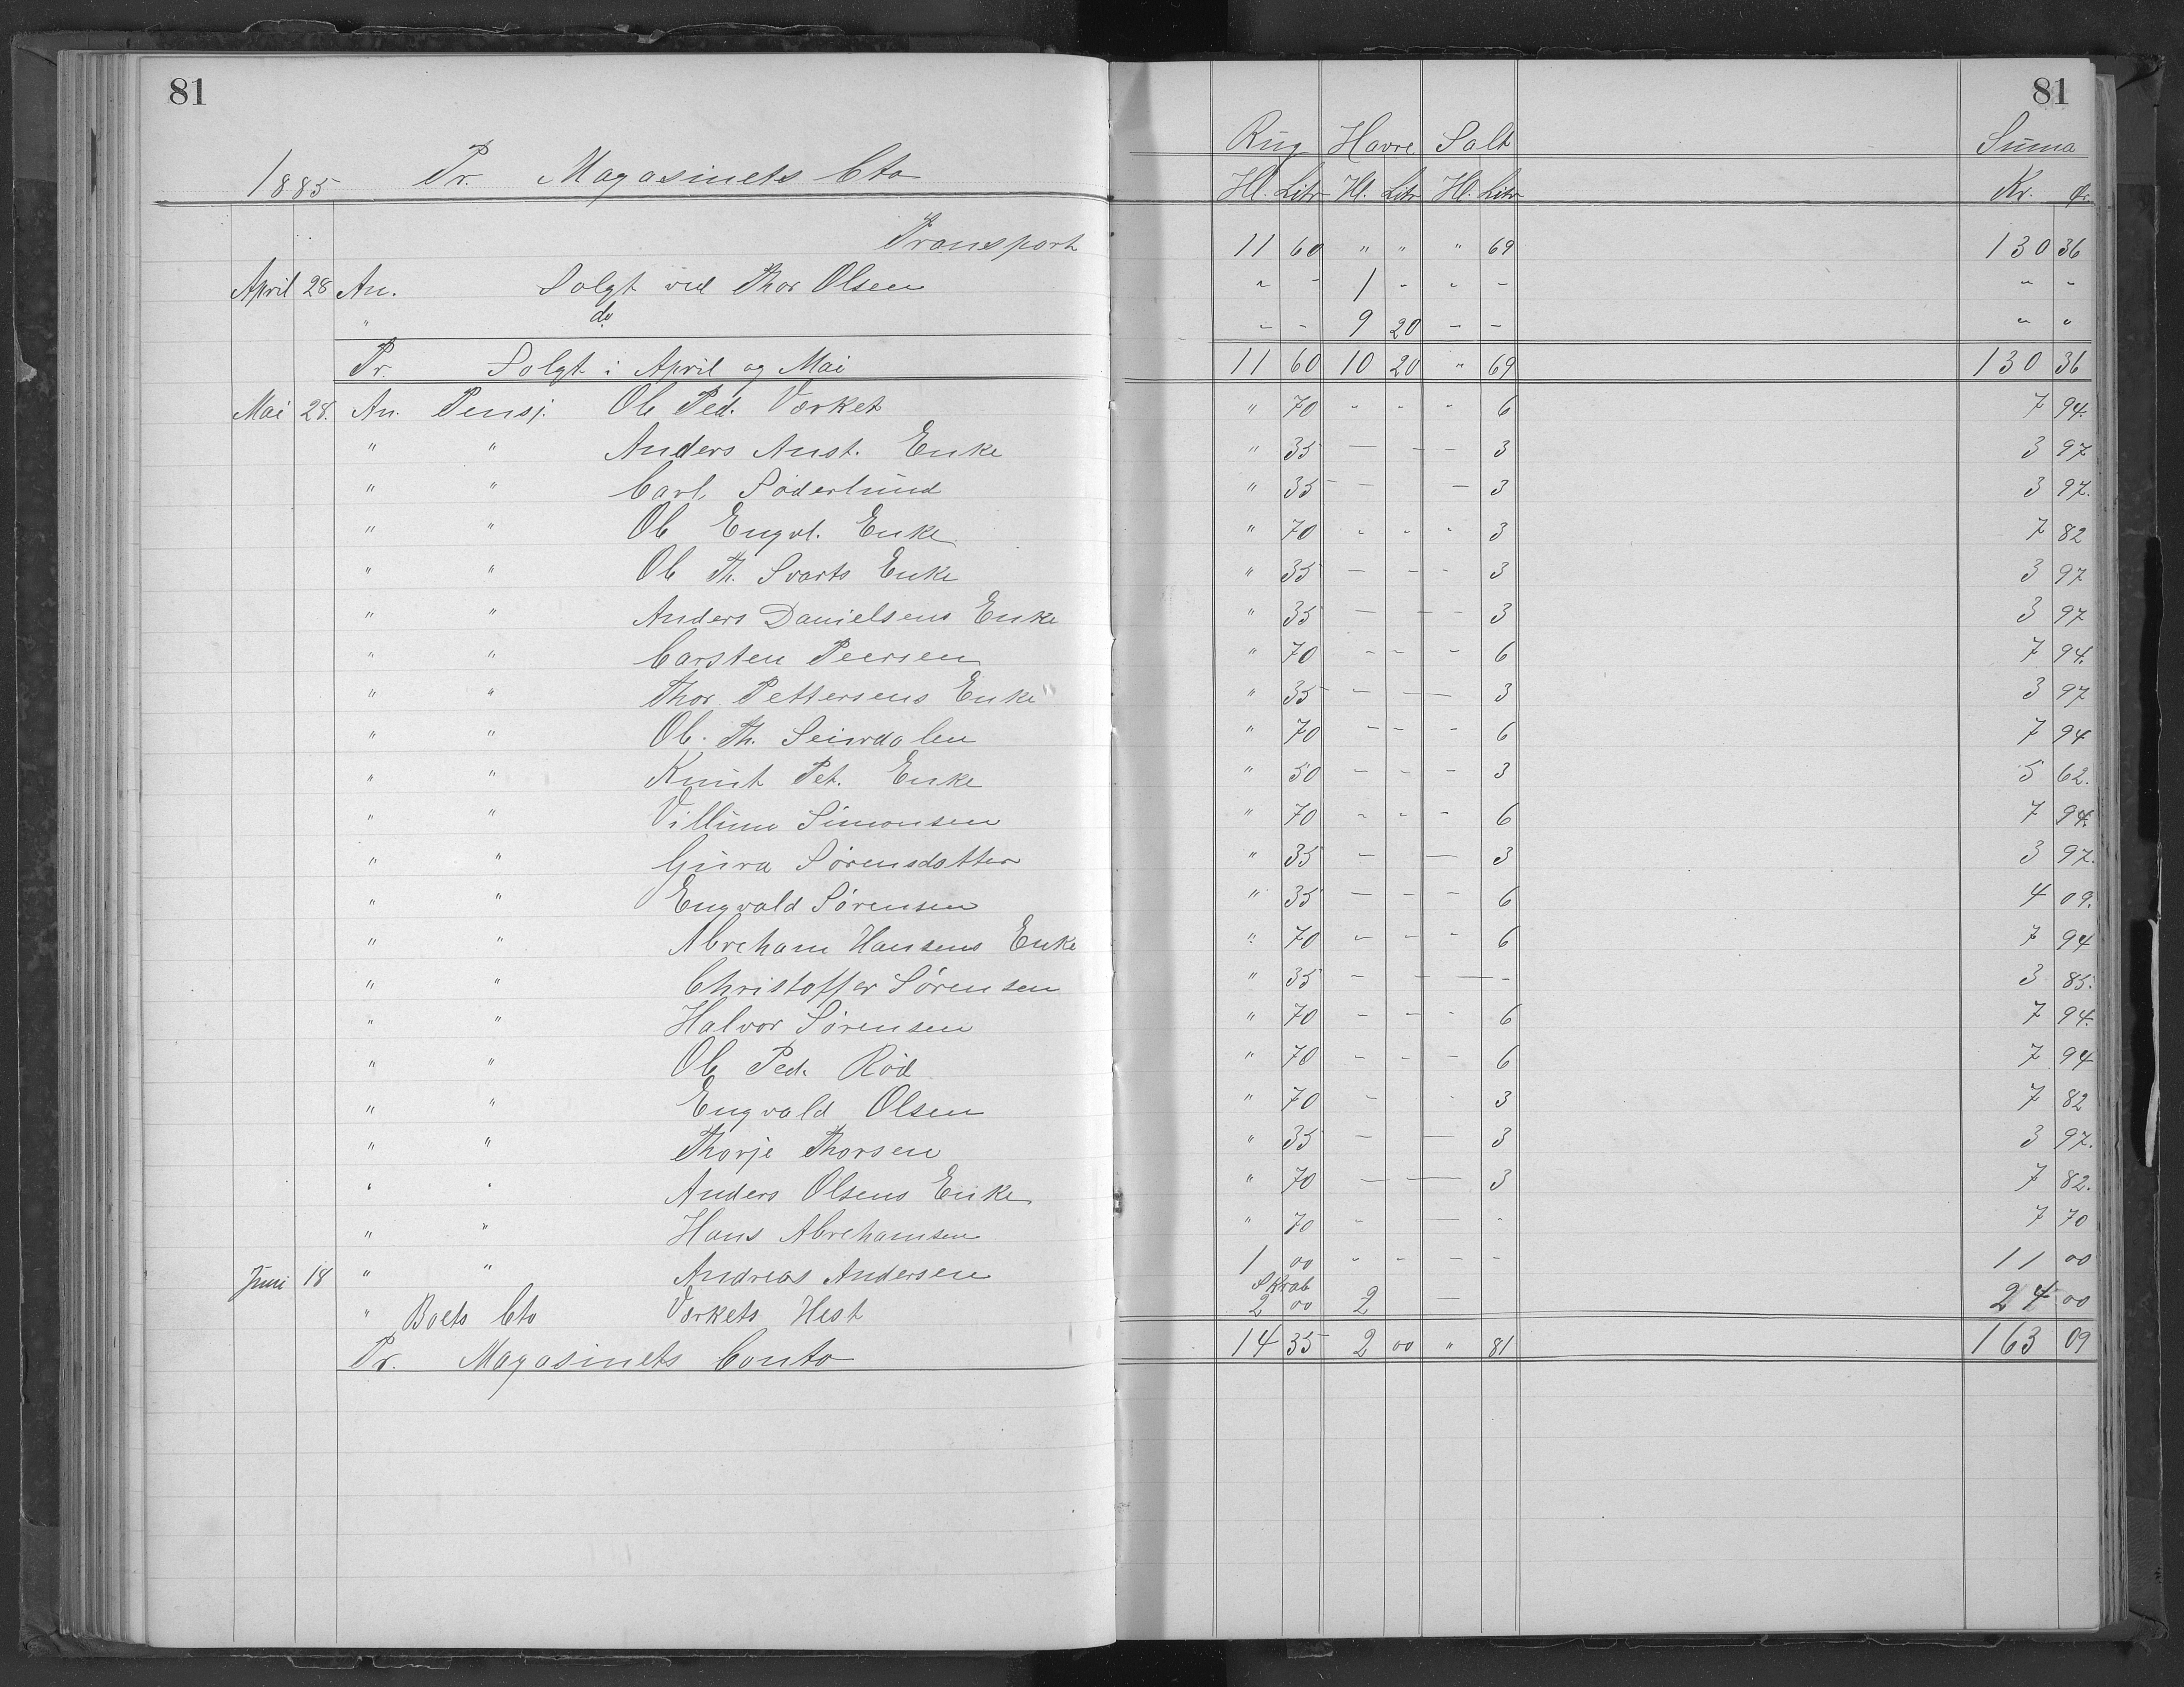 81 81
Rug Havre Salt Suma
1885 Pr. Magasinets Cto Hl. Litr Hl. Litr Hl. Litr Kr. Ør.
Transport 11 60 " " " 69 130 36
April 28 An. Solgt ved Thor Olsen " - 1 - " - " "
" do - - 9 20 - - " "
Pr. Solgt i April og Mai 11 60 10 20 " 69 130 36
Mai 28. An. Pensj. Ole Ped. Værket " 70 - - - 6 7 94.
" " Anders Aust. Enke " 35 - - - 3 3 97
" " Carl Søderlund " 35 - - - 3 3 97.
" " Ole Engvl. Enke " 70 - - - 3 7 82
" " Ole Th. Svarts Enke " 35 - - - 3 3 97
" " Anders Danielsens Enke " 35 - - - 3 3 97
" " Carsten Peersen " 70 - - - 6 7 94.
" " Thor Pettersens Enke " 35 - - 3 3 97
" " Ole Th. Seirdalen " 70 - - - 6 7 94
" " Knut Pet. Enke " 50 - - - 3 5 62.
" " Villum Simonsen " 70 - - - 6 7 94.
" " Gura Sørensdatter " 35 - - 3 3 97.
" " Engvald Sørensen " 35 - - - 6 4 09.
" " Abreham Hansens Enke " 70 - - - 6 7 94
" " Christoffer Sørensen " 35 - - - - 3 85.
" " Halvor Sørensen " 70 - - - 6 7 94.
" " Ole Ped. Rød " 70 - - - 6 7 94
" " Engvald Olsen " 70 - - 3 7 82
" " Thorje Thorsen " 35 - - 3 3 97.
" " Anders Olsens Enke " 70 - - 3 7 82.
" " Hans Abrehamsen " 70 - - - 7 70
Juni 18 " " Andreas Andersen 1 00 - - - - 11 00
" Boets Cto Værkets Hest 2 00 2 - 24 00
Pr. Magasinets Conto 14 35 2 00 " 81 163 09